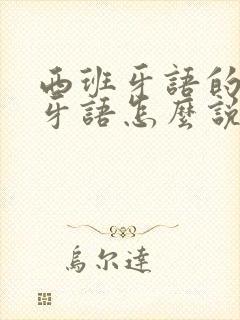 西班牙語的
牙語怎麼說
烏尔達